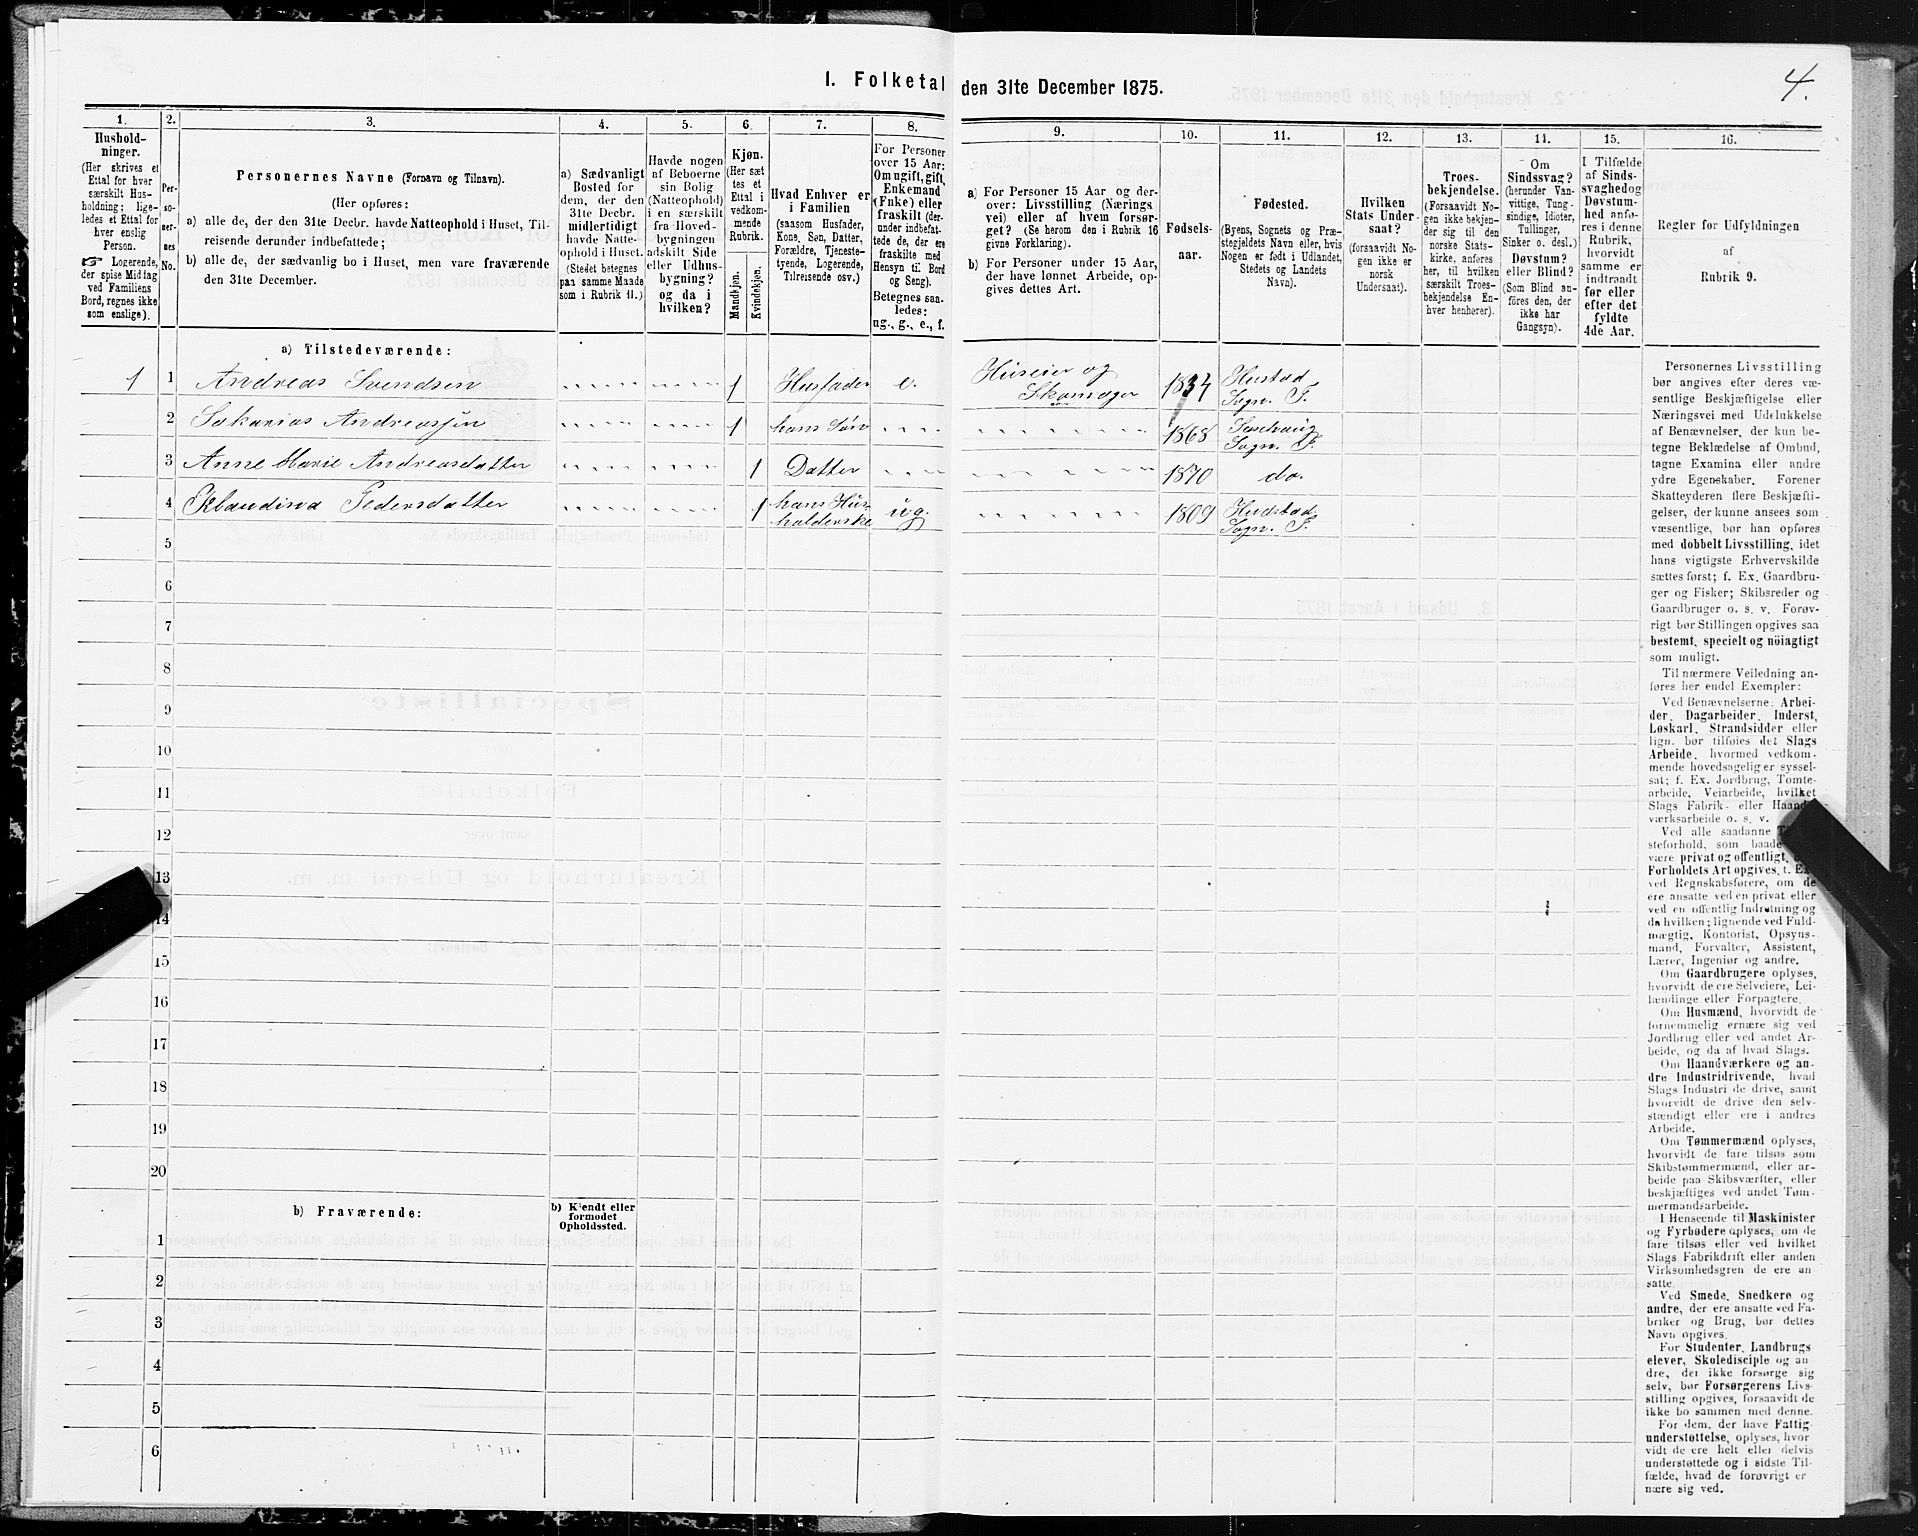 I. Folketal den 31te December 1875.
4.
1.
Hushold-
ninger.
(Her skrives et
Ettal for hver
særskilt Hus-
holdning; lige-
ledes et Ettal for
hver enslig
Person.
☞ Logerende,
der spise Middag
ved Familiens
Bord, regnes ikke
som enslige).
2.
Per-
so-
ner-
nes
No.
3.
Personernes Navne (Fornavn og Tilnavn).
(Her opføres:
a) alle de, der den 31te Decbr. havde Natteophold i Huset, Til-
reisende derunder indbefattede;
b) alle de, der sædvanlig bo i Huset, men vare fraværende
den 31te December.
4.
a) Sædvanligt
Bosted for
dem, der den
31te Decbr.
midlertidigt
havde Natte-
ophold i Huset.
(Stedet betegnes
paa samme Maade
som i Rubrik 11.)
5.
Havde nogen
af Beboerne
sin Bolig
(Natteophold)
i en særskilt
fra Hoved-
bygningen
adskilt Side
eller Udhus-
bygning?
og da i
hvilken?
6.
Kjøn.
(Her sæt
tes et
Ettal i
vedkom-
mende
Rubrik.
Mandkjøn.
Kvindekjøn.
7.
Hvad Enhver er
i Familien
(saasom Husfader,
Kone, Søn, Datter,
Forældre, Tjeneste-
tyende, Logerende,
Tilreisende osv.)
8.
For Personer
over 15 Aar:
Om ugift, gift,
Enkemand
(Enke) eller
fraskilt (der-
under indbefat-
tede de, der ere
fraskilte med
Hensyn til Bord
og Seng).
Betegnes saa-
ledes:
ug., g., e., f.
9.
a) For Personer 15 Aar og der-
over: Livsstilling (Nærings
vei) eller af hvem forsør-
get? (Se herom den i Rubrik 16
givne Forklaring).
b) For Personer under 15 Aar,
der have lønnet Arbeide, op-
gives dettes Art.
10.
Fødsels-
aar.
11.
Fødested.
(Byens, Sognets og Præ-
stegjeldets Navn eller, hvis
Nogen er født i Udlandet,
Stedets og Landets
Navn).
12.
Hvilken
Stats Under-
saat?
(forsaavidt No-
gen ikke er
norsk
Undersaat).
13.
Troes-
bekjendelse.
(Forsaavidt No-
gen ikke bekjen-
der sig til den
norske Stats-
kirke, anføres
her, til hvilken
særskilt Troes-
bekjendelse En-
hver henhører).
14.
Om
Sindssvag?
(herunder Van-
vittige, Tung-
sindige, Idioter,
Tullinger,
Sinker o. desl.)
Døvstum?
eller Blind?
(Som Blind an-
føres den, der
ikke har
Gangsyn).
15.
I Tilfælde
af Sinds-
svaghed og
Døvstum-
hed anfø-
res i denne
Rubrik,
hvorvidt
samme er
indtraadt
før eller
efter det
fyldte
4de Aar.
16.
Regler for Udfyldningen
af
Rubrik 9.
a) Tilstedeværende:
1 1 Andreas Svendsen 1 Husfader e. Huseier og Skomager 1834 Hustad Sogn. F.
2 Sakarias Andreassen 1 hans Søn 1868 Sogn. F.
3 Anne Marie Andreasdatter 1 Datter 1870 do.
4 Klaudina Pedersdatter 1 hans Hus-holderske ug. 1809 Hudstad Sogn. F.
5
6
7
8
9
10
11
12
13
14
15
16
17
18
19
20
b) Fraværende:
b) Kjendt eller
formodet
Opholdssted.
1
2
3
4
5
6
Personernes Livsstilling
bør angives efter deres væ-
sentlige Beskjæftigelse eller
Næringsvei med Udelukkelse
af Benævnelser, der kun be-
tegne Beklædelse af Ombud,
tagne Examina eller andre
ydre Egenskaber. Forener
Skatteyderen flere Beskjæfti-
gelser, der kunne ansees som
væsentlige, bør han opføres
med dobbelt Livsstilling, idet
hans vigtigste Erhvervskilde
sættes først; f. Ex. Gaardbru-
ger og Fisker; Skibsreder og
Gaardbruger o. s. v. Forøv-
rigt bør Stillingen opgives saa
bestemt, specielt og nöiagtigt
som muligt.
Til nærmere Veiledning an-
føres her endel Exempler:
Ved Benævnelserne: Arbei-
der, Dagarbeider, Inderst,
Løskarl, Strandsidder eller
lign. bør tilføies det Slags
Arbeide, hvormed vedkom-
mende hovedsagelig er syssel-
sat; f. Ex. Jordbrug, Tomte-
arbeide, Veiarbeide, hvilket
Slags Fabrik- eller Haand-
værksarbeide o. s. v.
Ved alle saadanne
steforhold, som baade
være privat og offentlig,
Forholdets Art opgives, f. Ex.
ved Regnskabsførere, om de
ere ansatte ved en privat eller
ved en offentlig Indretning og
da hvilken; lignende ved Fuld-
mægtig, Kontorist, Opsyns-
mand, Forvalter, Assistent,
Lærer, Ingeniør og andre.
Om Gaardbrugere oplyses,
hvorvidt de ere Selveiere, Lei-
lændinge eller Forpagtere.
Om Husmænd, hvorvidt de
fornemmelig ernære sig ved
Jordbrug eller ved andet Ar-
beide, og da af hvad Slags.
Om Haandværkere og an-
dre Industridrivende, hvad
Slags Industri de drive, samt
hvorvidt de drive den selv-
stændigt eller ere i andres
Arbeide.
Om Tømmermænd oplyses,
hvorvidt de fare tilsøs som
Skibstømmermænd, eller ar-
beide paa Skibsværfter, eller
beskjæftiges ved andet Tøm-
mermandsarbeide.
I Henseende til Maskinister
og Fyrbødere oplyses, om de
fare tilsøs eller ved hvilket
Slags Fabrikdrift eller anden
Virksomhedsgren de ere an-
satte.
Ved Smede, Snedkere og
andre, der ere ansatte ved Fa-
briker og Brug, bør dettes
Navn opgives.
For Studenter, Landbrugs
elever, Skoledisciple og an
dre, der ikke forsørge sig
selv, bør Forsørgerens Livs-
stilling opgives, forsaavidt de
ikke bo sammen med denne.
For dem, der have Fattig-
understøttelse, oplyses, hvor
vidt de ere helt eller delvis
understøttede og i sidste Til-
fælde, hvad de forøvrigt er
nære sig ved.